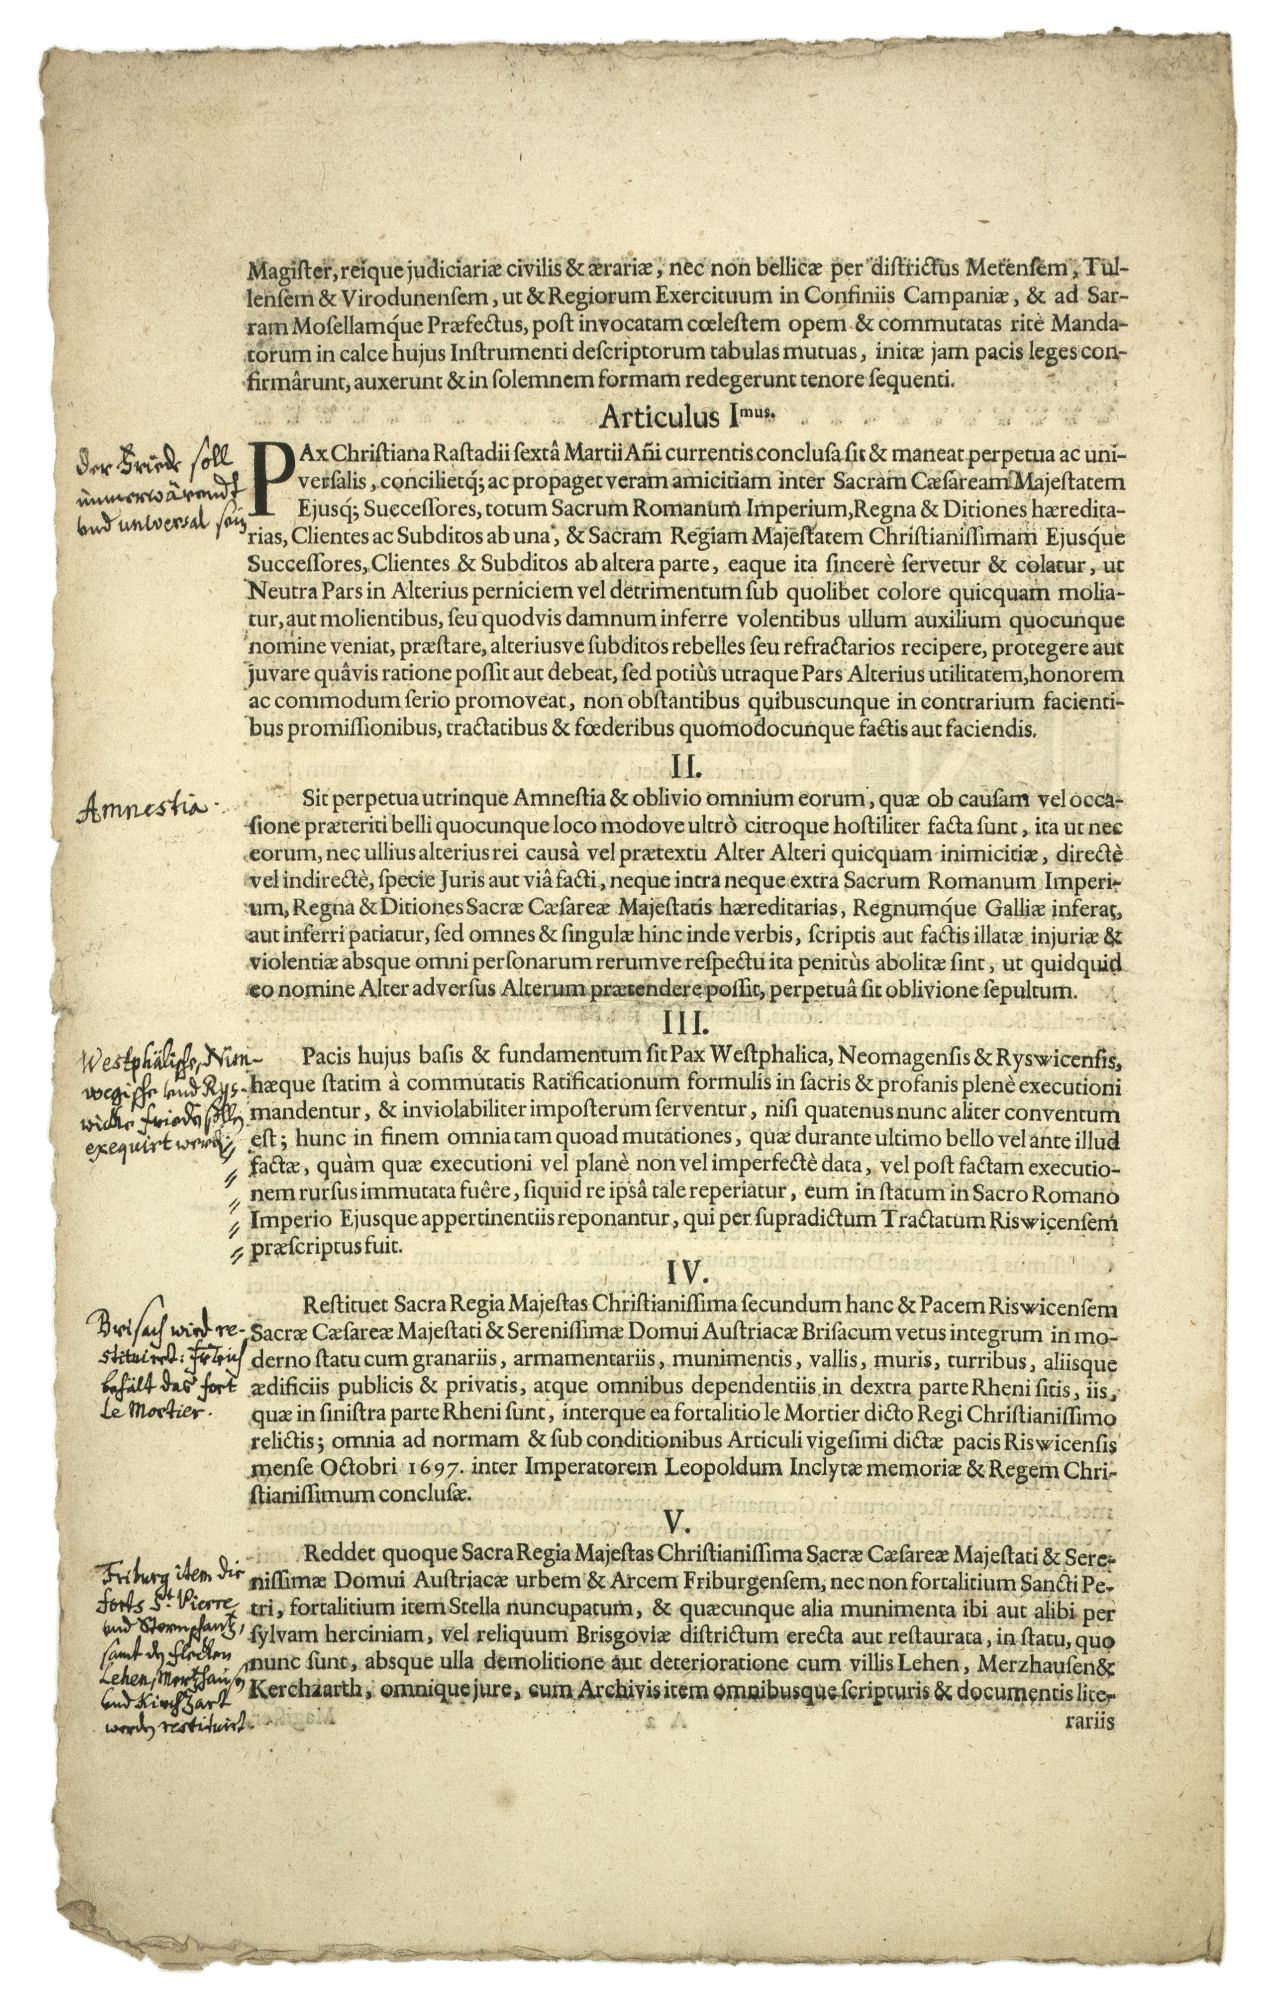 Magister, reique judiciariæ civilis & ærariæ, nec non bellicæ per districtus Metensem, Tul-
lensem & Virodunensem, ut & Regiorum Exercituum in Confiniis Campaniæ, & ad Sar-
ram Mosellamq́ue Præfectus, post invocatam cœlestem opem & commutatas ritè Manda-
torum in calce hujus Instrumenti descriptorum tabulas mutuas, initæ jam pacis leges con-
firmârunt, auxerunt & in solemnem formam redegerunt tenore sequenti.
Articulus Imus.
der Friede soll
immerwärendt
und universal sein
PAx Christiana Rastadii sextâ Martii Añi currentis conclusa sit & maneat perpetua ac uni-
versalis, concilietq́; ac propaget veram amicitiam inter Sacram Cæsaream Majestatem
Ejusq́; Successores, totum Sacrum Romanum Imperium, Regna & Ditiones hæredita-
rias, Clientes ac Subditos ab una, & Sacram Regiam Majestatem Christianissimam Ejusq́ue
Successores, Clientes & Subditos ab altera parte, eaque ita sincerè servetur & colatur, ut
Neutra Pars in Alterius perniciem vel detrimentum sub quolibet colore quicquam molia-
tur, aut molientibus, seu quodvis damnum inferre volentibus ullum auxilium quocunque
nomine veniat, præstare, alteriusve subditos rebelles seu refractarios recipere, protegere aut
juvare quâvis ratione possit aut debeat, sed potiùs utraque Pars Alterius utilitatem, honorem
ac commodum serio promoveat, non obstantibus quibuscunque in contrarium facienti-
bus promissionibus, tractatibus & fœderibus quomodocunque factis aut faciendis.
II.
Amnestia.
Sit perpetua utrinque Amnestia & oblivio omnium eorum, quæ ob causam vel occa-
sione præteriti belli quocunque loco modove ultrò citroque hostiliter facta sunt, ita ut nec
eorum, nec ullius alterius rei causâ vel prætextu Alter Alteri quicquam inimicitiæ, directè
vel indirectè, specie Juris aut viâ facti, neque intra neque extra Sacrum Romanum Imperi-
um, Regna & Ditiones Sacræ Cæsareæ Majestatis hæreditarias, Regnumq́ue Galliæ inferat,
aut inferri patiatur, sed omnes & singulæ hinc inde verbis, scriptis aut factis illatæ injuriæ &
violentiæ absque omni personarum rerumve respectu ita penitùs abolitæ sint, ut quidquid
eo nomine Alter adversus Alterum prætendere possit, perpetuâ sit oblivione sepultum.
III.
Westphälische, Nim-
wegische und Rys-
wicke frieden sollen
exequirt werden
Pacis hujus basis & fundamentum sit Pax Westphalica, Neomagensis & Ryswicensis,
hæque statim à commutatis Ratificationum formulis in sacris & profanis plenè executioni
mandentur, & inviolabiliter imposterum serventur, nisi quatenus nunc aliter conventum
est; hunc in finem omnia tam quoad mutationes, quæ durante ultimo bello vel ante illud
factæ, quàm quæ executioni vel planè non vel imperfectè data, vel post factam executio-
nem rursus immutata fuêre, siquid re ipsâ tale reperiatur, eum in statum in Sacro Romano
Imperio Ejusque appertinentiis reponantur, qui per supradictum Tractatum Riswicensem
præscriptus fuit.
IV.
Brisach wird re-
stituirt: Frkreich
behält das fort
Le Mortier.
Restituet Sacra Regia Majestas Christianissima secundum hanc & Pacem Riswicensem
Sacræ Cæsareæ Majestati & Serenissimæ Domui Austriacæ Brisacum vetus integrum in mo-
derno statu cum granariis, armamentariis, munimentis, vallis, muris, turribus, aliisque
ædificiis publicis & privatis, atque omnibus dependentiis in dextra parte Rheni sitis, iis,
quæ in sinistra parte Rheni sunt, interque ea fortalitio le Mortier dicto Regi Christianissimo
relictis; omnia ad normam & sub conditionibus Articuli vigesimi dictæ pacis Riswicensis
mense Octobri 1697. inter Imperatorem Leopoldum Inclytæ memoriæ & Regem Chri-
stianissimum conclusæ.
V.
Friburg item die
forts St. Pierre
und Sternschantz,
samt den flecken
Lehen, Mertzhausen
und Kirchzart
werden restituirt.
Reddet quoque Sacra Regia Majestas Christianissima Sacræ Cæsareæ Majestati & Sere-
nissimæ Domui Austriacæ urbem & Arcem Friburgensem, nec non fortalitium Sancti Pe-
tri, fortalitium item Stella nuncupatum, & quæcunque alia munimenta ibi aut alibi per
sylvam herciniam, vel reliquum Brisgoviæ districtum erecta aut restaurata, in statu, quo
nunc sunt, absque ulla demolitione aut deterioratione cum villis Lehen, Merzhausen &
Kerchzarth, omnique jure, cum Archivis item omnibusque scripturis & documentis lite-
rariis